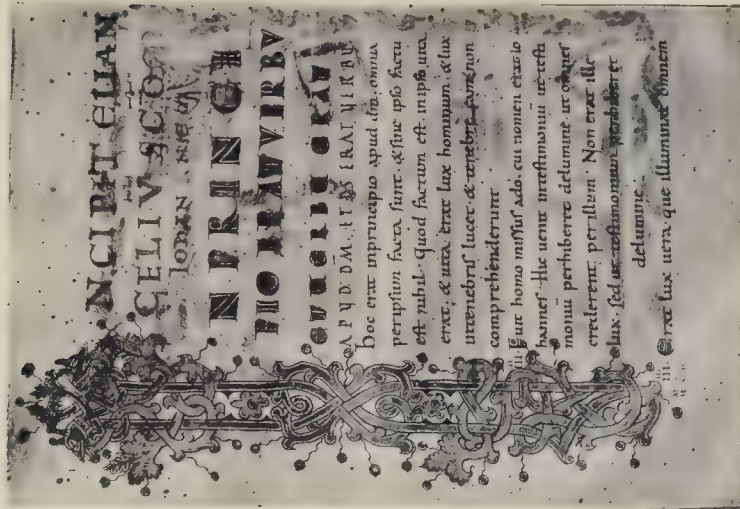 NCIPIT EUAN
GELIV SCD
IOHAN NES
N PRINCI
PIO ERAT VERBV
ET VERBU ERAT
APUD DM. ET DS ERAT UERBU
hoc erat inprincipio apud dm. omnia
peripsum facta sunt. & sine ipso factu
est nihil. quod factum est. inipso uita
erat; & uita erat lux hominum. & lux
intenebris lucet & tenebre eam non
comprehenderunt.
Fuit homo missus ado. cui nomen erat io
hannes. Hic uenit intestimoniu ut testi
moniu perhiberet delumine. ut omnes
crederent perillum. Non erat ille
lux. sed ut testimonium perhiberet
delumine.
Erat lux uera. que illuminat omnem